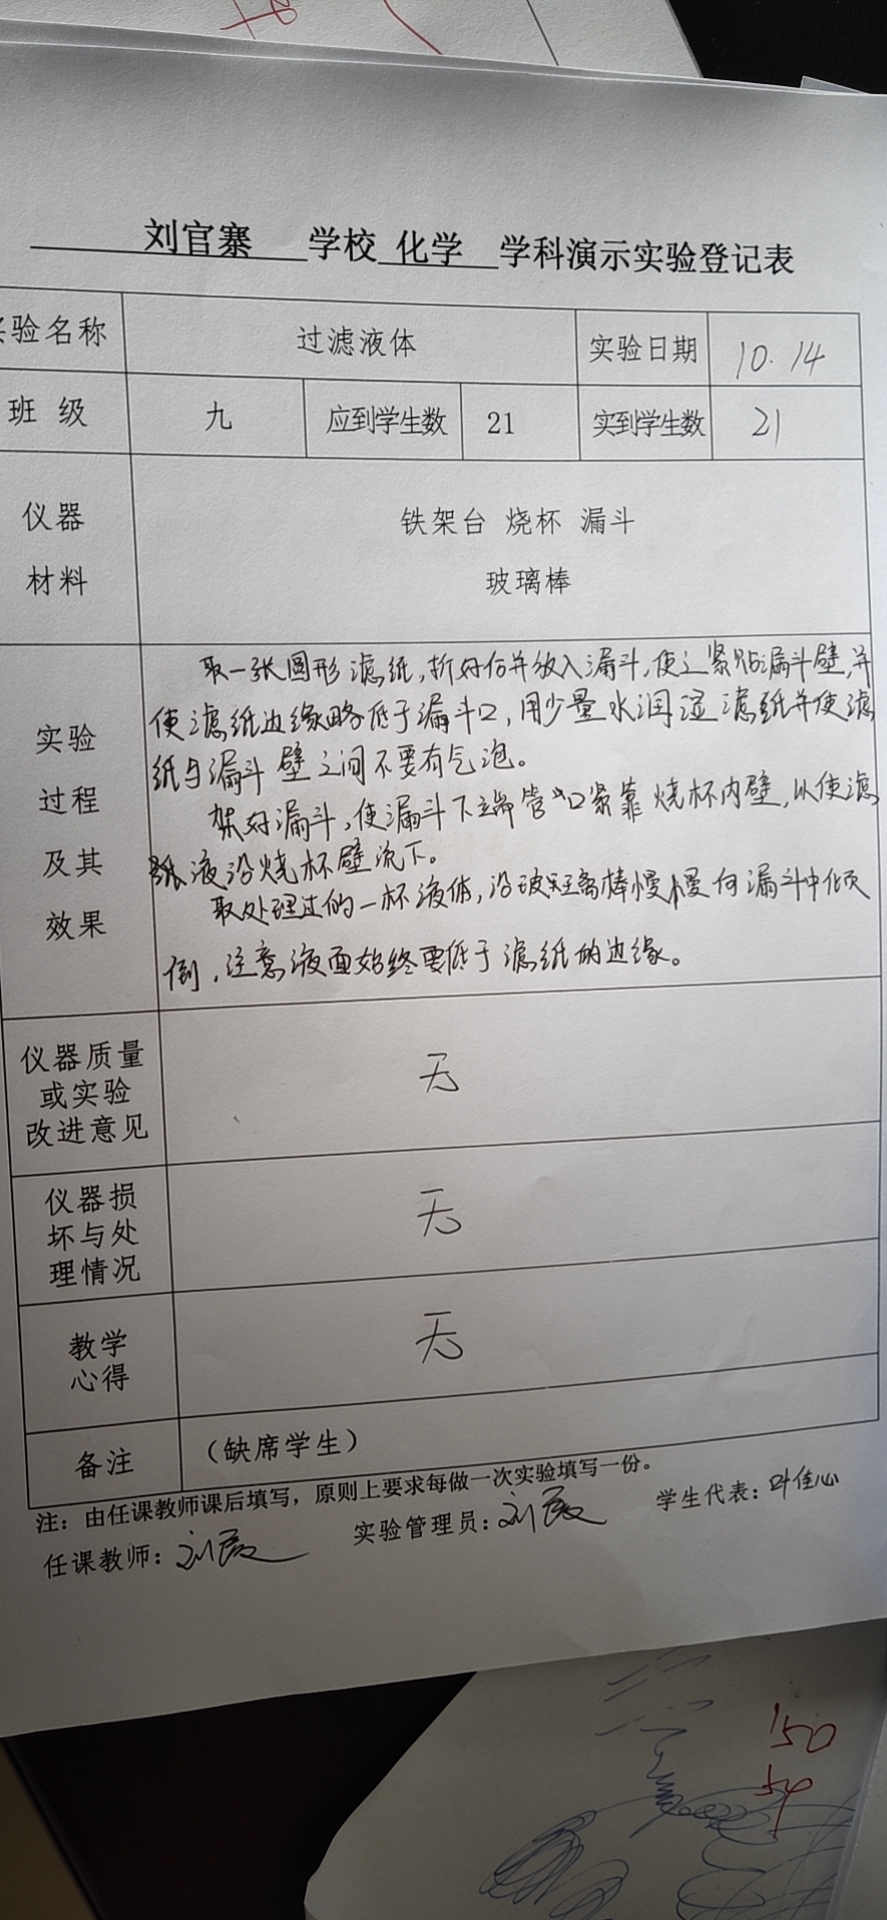 刘官寨 学校 化学 学科演示实验登记表
实验名称 过滤液体 实验日期 10.14
班 级 九 应到学生数 21 实到学生数 21
仪器
材料
铁架台 烧杯 漏斗
玻璃棒
实验
过程
及其
效果
取一张圆形滤纸,折好后并放入漏斗,使之紧贴漏斗壁,并
使滤纸边缘略低于漏斗口,用少量水润湿滤纸并使滤
纸与漏斗壁之间不要有气泡。
架好漏斗,使漏斗下端管口紧靠烧杯内壁,以使滤
液沿烧杯壁流下。
取处理过的一杯液体,沿玻璃棒慢慢向漏斗中倾
倒,注意液面始终要低于滤纸的边缘。
仪器质量
或实验
改进意见
无
仪器损
坏与处
理情况
无
教学
心得
无
备注 (缺席学生)
注：由任课教师课后填写，原则上要求每做一次实验填写一份。
任课教师： 实验管理员： 学生代表：叶佳心
150
54